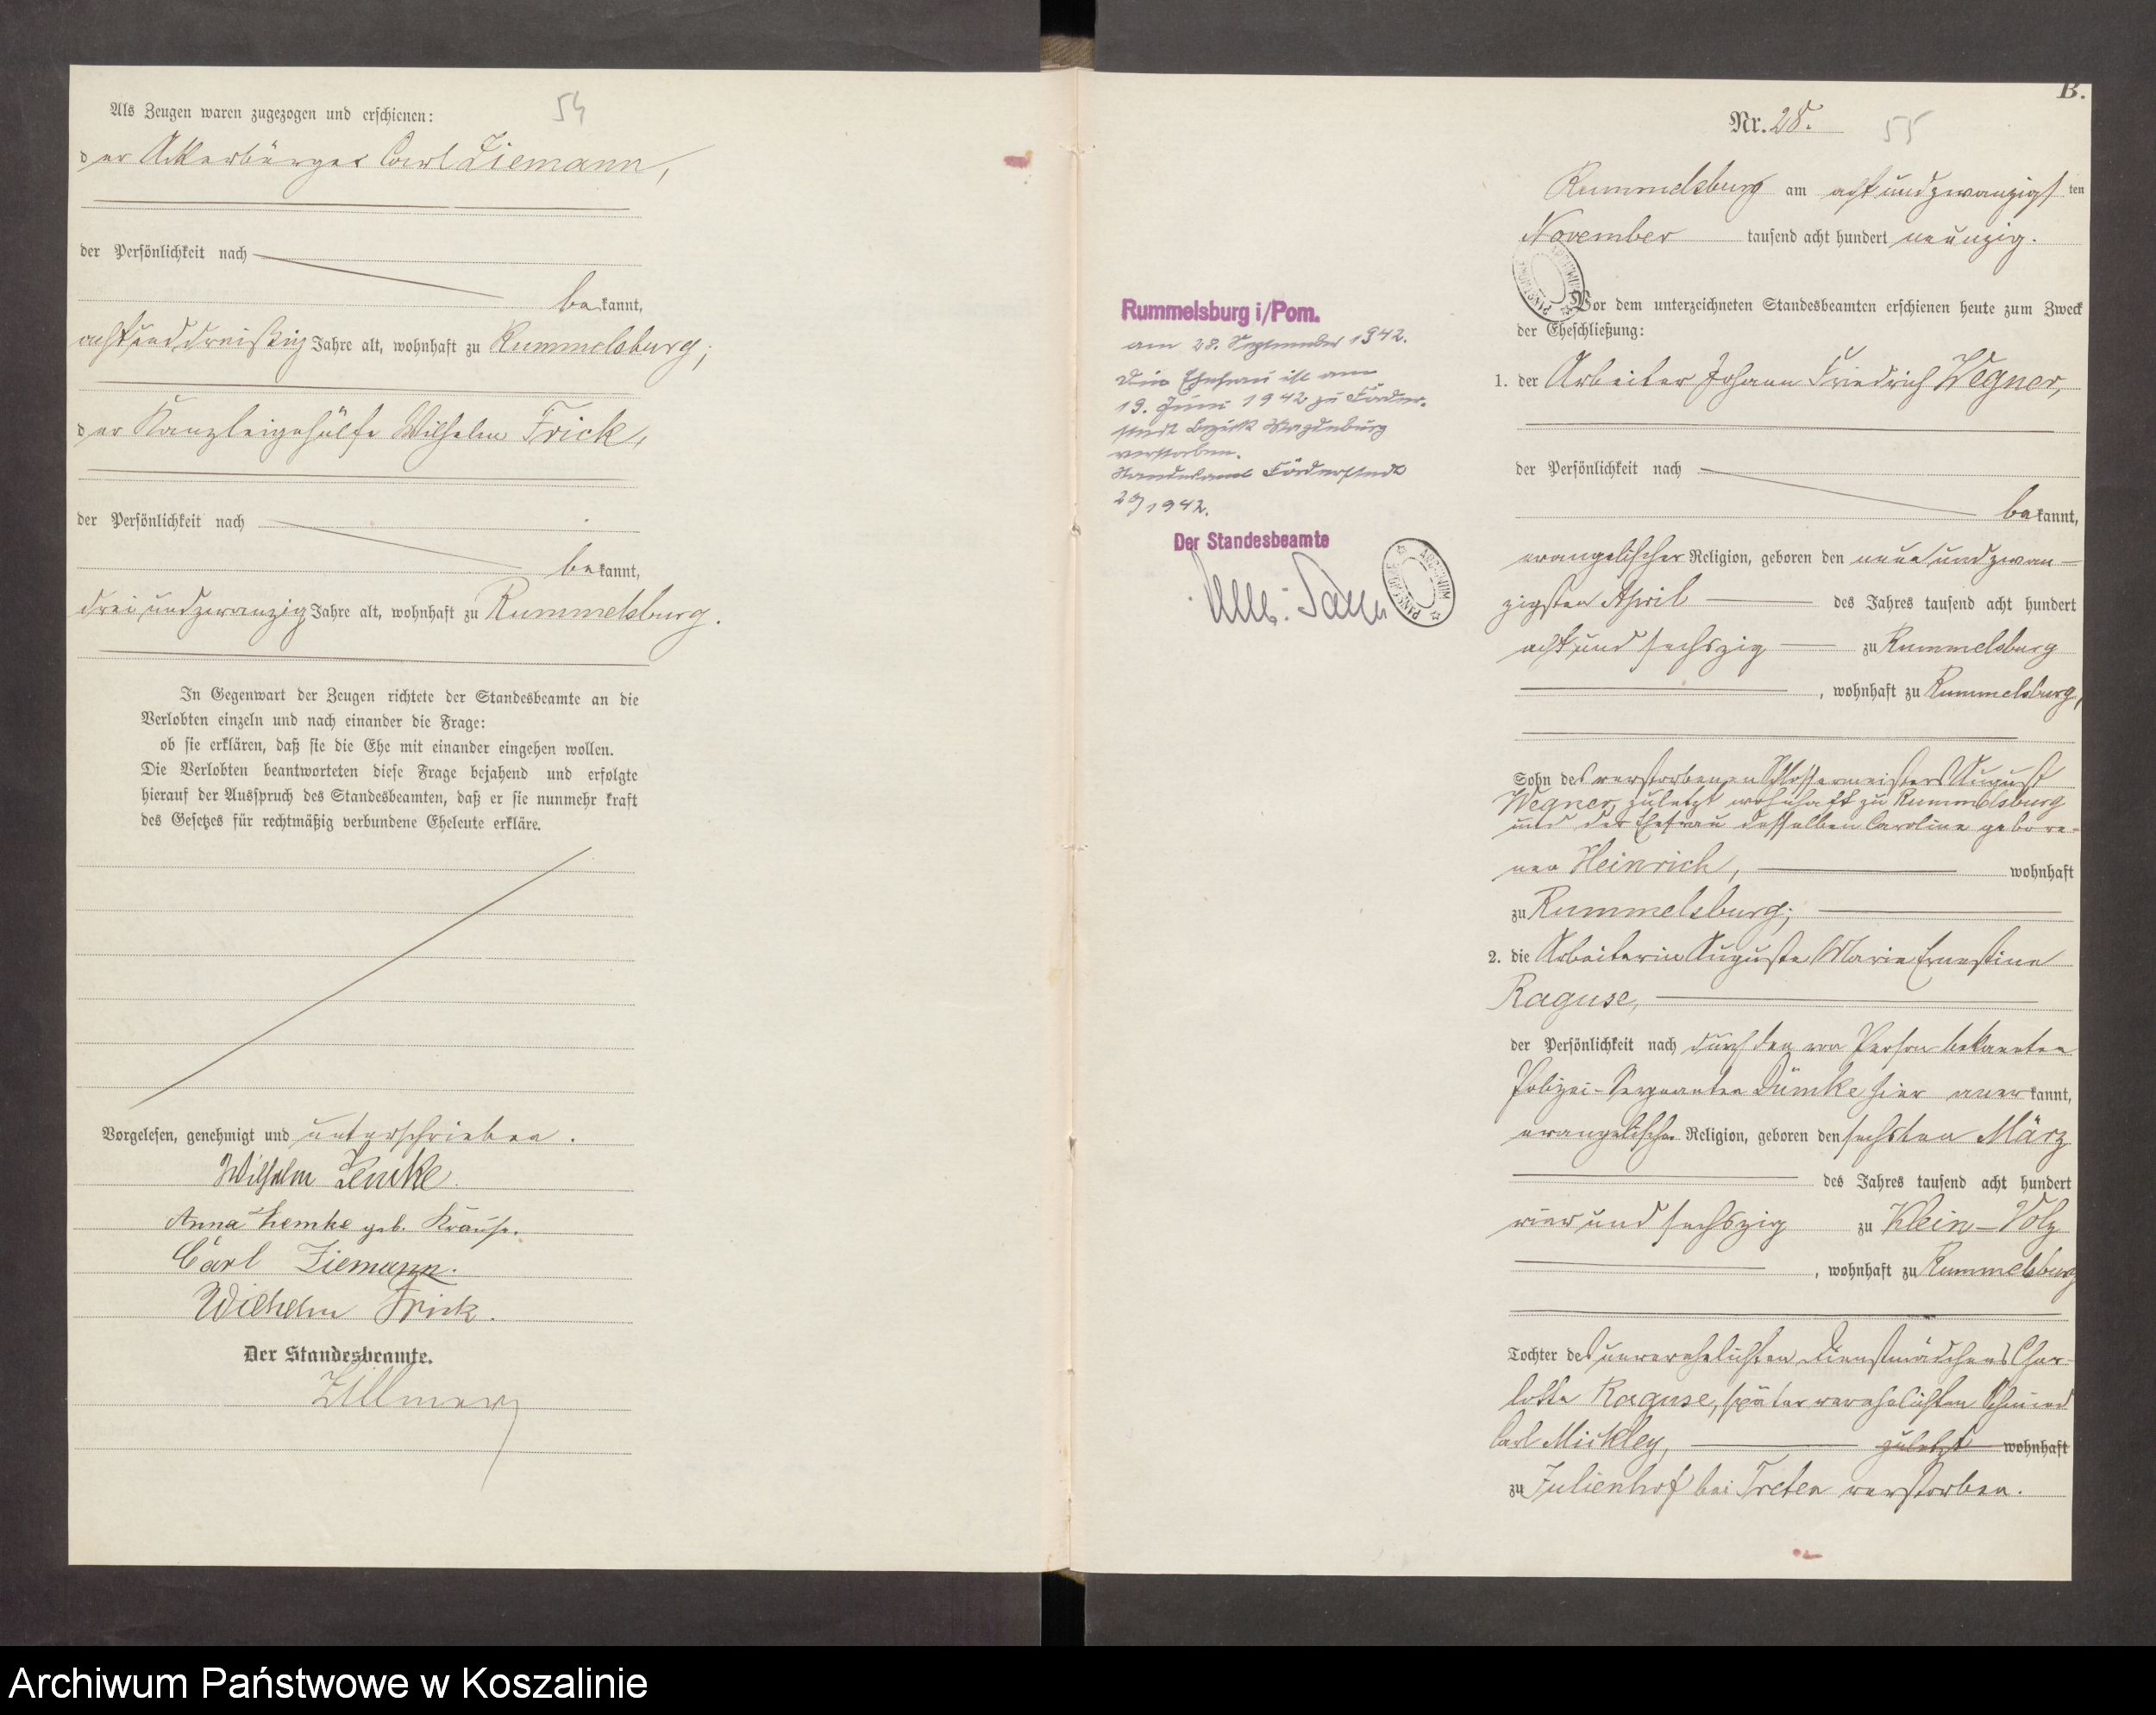 Als Zeugen waren zugezogen und erschienen:
54
der Ackerbürger Carl Ziemann,
der Persönlichkeit nach
bekannt,
achtunddreißig Jahre alt, wohnhaft zu Rummelsburg;
der Kanzleigehülfe Wilhelm Frick,
der Persönlichkeit nach
bekannt,
dreiundzwanzig Jahre alt, wohnhaft zu Rummelsburg.
In Gegenwart der Zeugen richtete der Standesbeamte an die
Verlobten einzeln und nach einander die Frage:
ob sie erklären, daß sie die Ehe mit einander eingehen wollen.
Die Verlobten beantworteten diese Frage bejahend und erfolgte
hierauf der Ausspruch des Standesbeamten, daß er sie nunmehr kraft
des Gesetzes für rechtmäßig verbundene Eheleute erkläre.
Vorgelesen, genehmigt und unterschrieben.
Wilhelm Lemke
Anna Lemke geb. Krause.
Carl Ziemann.
Wilhelm Frick.
Der Standesbeamte.
Zillmer
Rummelsburg i/Pom.
am 28. September 1942.
Die Ehefrau ist am
19. Juni 1942 zu Förder-
stedt Bezirk Magdeburg
verstorben.
Standesamt Förderstedt
29/1942.
Der Standesbeamte
B.
Nr. 28.
55
Rummelsburg am acht und zwanzigsten
November tausend acht hundert neunzig.
Vor dem unterzeichneten Standesbeamten erschienen heute zum Zweck
der Eheschließung:
1. der Arbeiter Johann Friedrich Wegner,
der Persönlichkeit nach
bekannt,
evangelischer Religion, geboren den neun und zwan-
zigsten April des Jahres tausend acht hundert
acht und sechszig zu Rummelsburg
, wohnhaft zu Rummelsburg,
Sohn des verstorbenen Schlossermeisters August
Wegner, zuletzt wohnhaft zu Rummelsburg
und der Ehefrau desselben Caroline gebore-
nen Heinrich, wohnhaft
zu Rummelsburg;
2. die Arbeiterin Auguste Marie Ernestine
Raguse,
der Persönlichkeit nach durch den von Person bekannten
Polizei-Sergeanten Dümke hier anerkannt,
evangelischer Religion, geboren den sechsten März
des Jahres tausend acht hundert
vier und sechszig zu Klein-Volz
, wohnhaft zu Rummelsburg
Tochter des unverehelichten Dienstmädchens Char-
lotte Raguse, später verehelichten Schmied
Carl Mickley, zuletzt wohnhaft
zu Julienhof bei Treten verstorben.
Archiwum Państwowe w Koszalinie